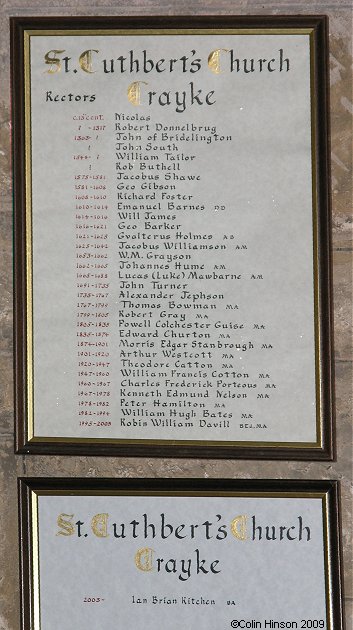 St. Cuthbert's Church
Rectors Crayke
Nicolas
? - 1317 Robert Donnelbrug
John of Bridelington
? John South
1544- ? William Tailor
? Rob Buthell
1575-1581 Jacobus Shawe
1581-1606 Geo Gibson
1608-1610 Richard Foster
1610-1614 Emanuel Barnes DD
1614-1616 Will James
1616-1621 Geo Barker
1621-1625 Gvalterus Holmes AB
1625-1642 Jacobus Williamson AM
1653-1662 W.M. Grayson
1662-1665 Johannes Hume AM
1665-1688 Lucas (Luke) Mawbarne AM
1691-1735 John Turner
1735-1767 Alexander Jephson
1767-1799 Thomas Bowman MA
1799-1805 Robert Gray MA
1805-1835 Powell Colchester Guise MA
1835-1874 Edward Churton MA
1874-1901 Morris Edgar Stanbrough MA
1901-1920 Arthur Westcott MA
1920-1947 Theodore Catton MA
1947-1960 William Francis Cotton MA
1960-1967 Charles Frederick Porteous MA
1967-1978 Kenneth Edmund Nelson MA
1978-1982 Peter Hamilton MA
1982-1994 William Hugh Bates MA
1995-2003 Robis William Davill MA
St. Cuthbert's Church
Crayke
2003- Ian Brian Kitchen BA
©Colin Hinson 2009